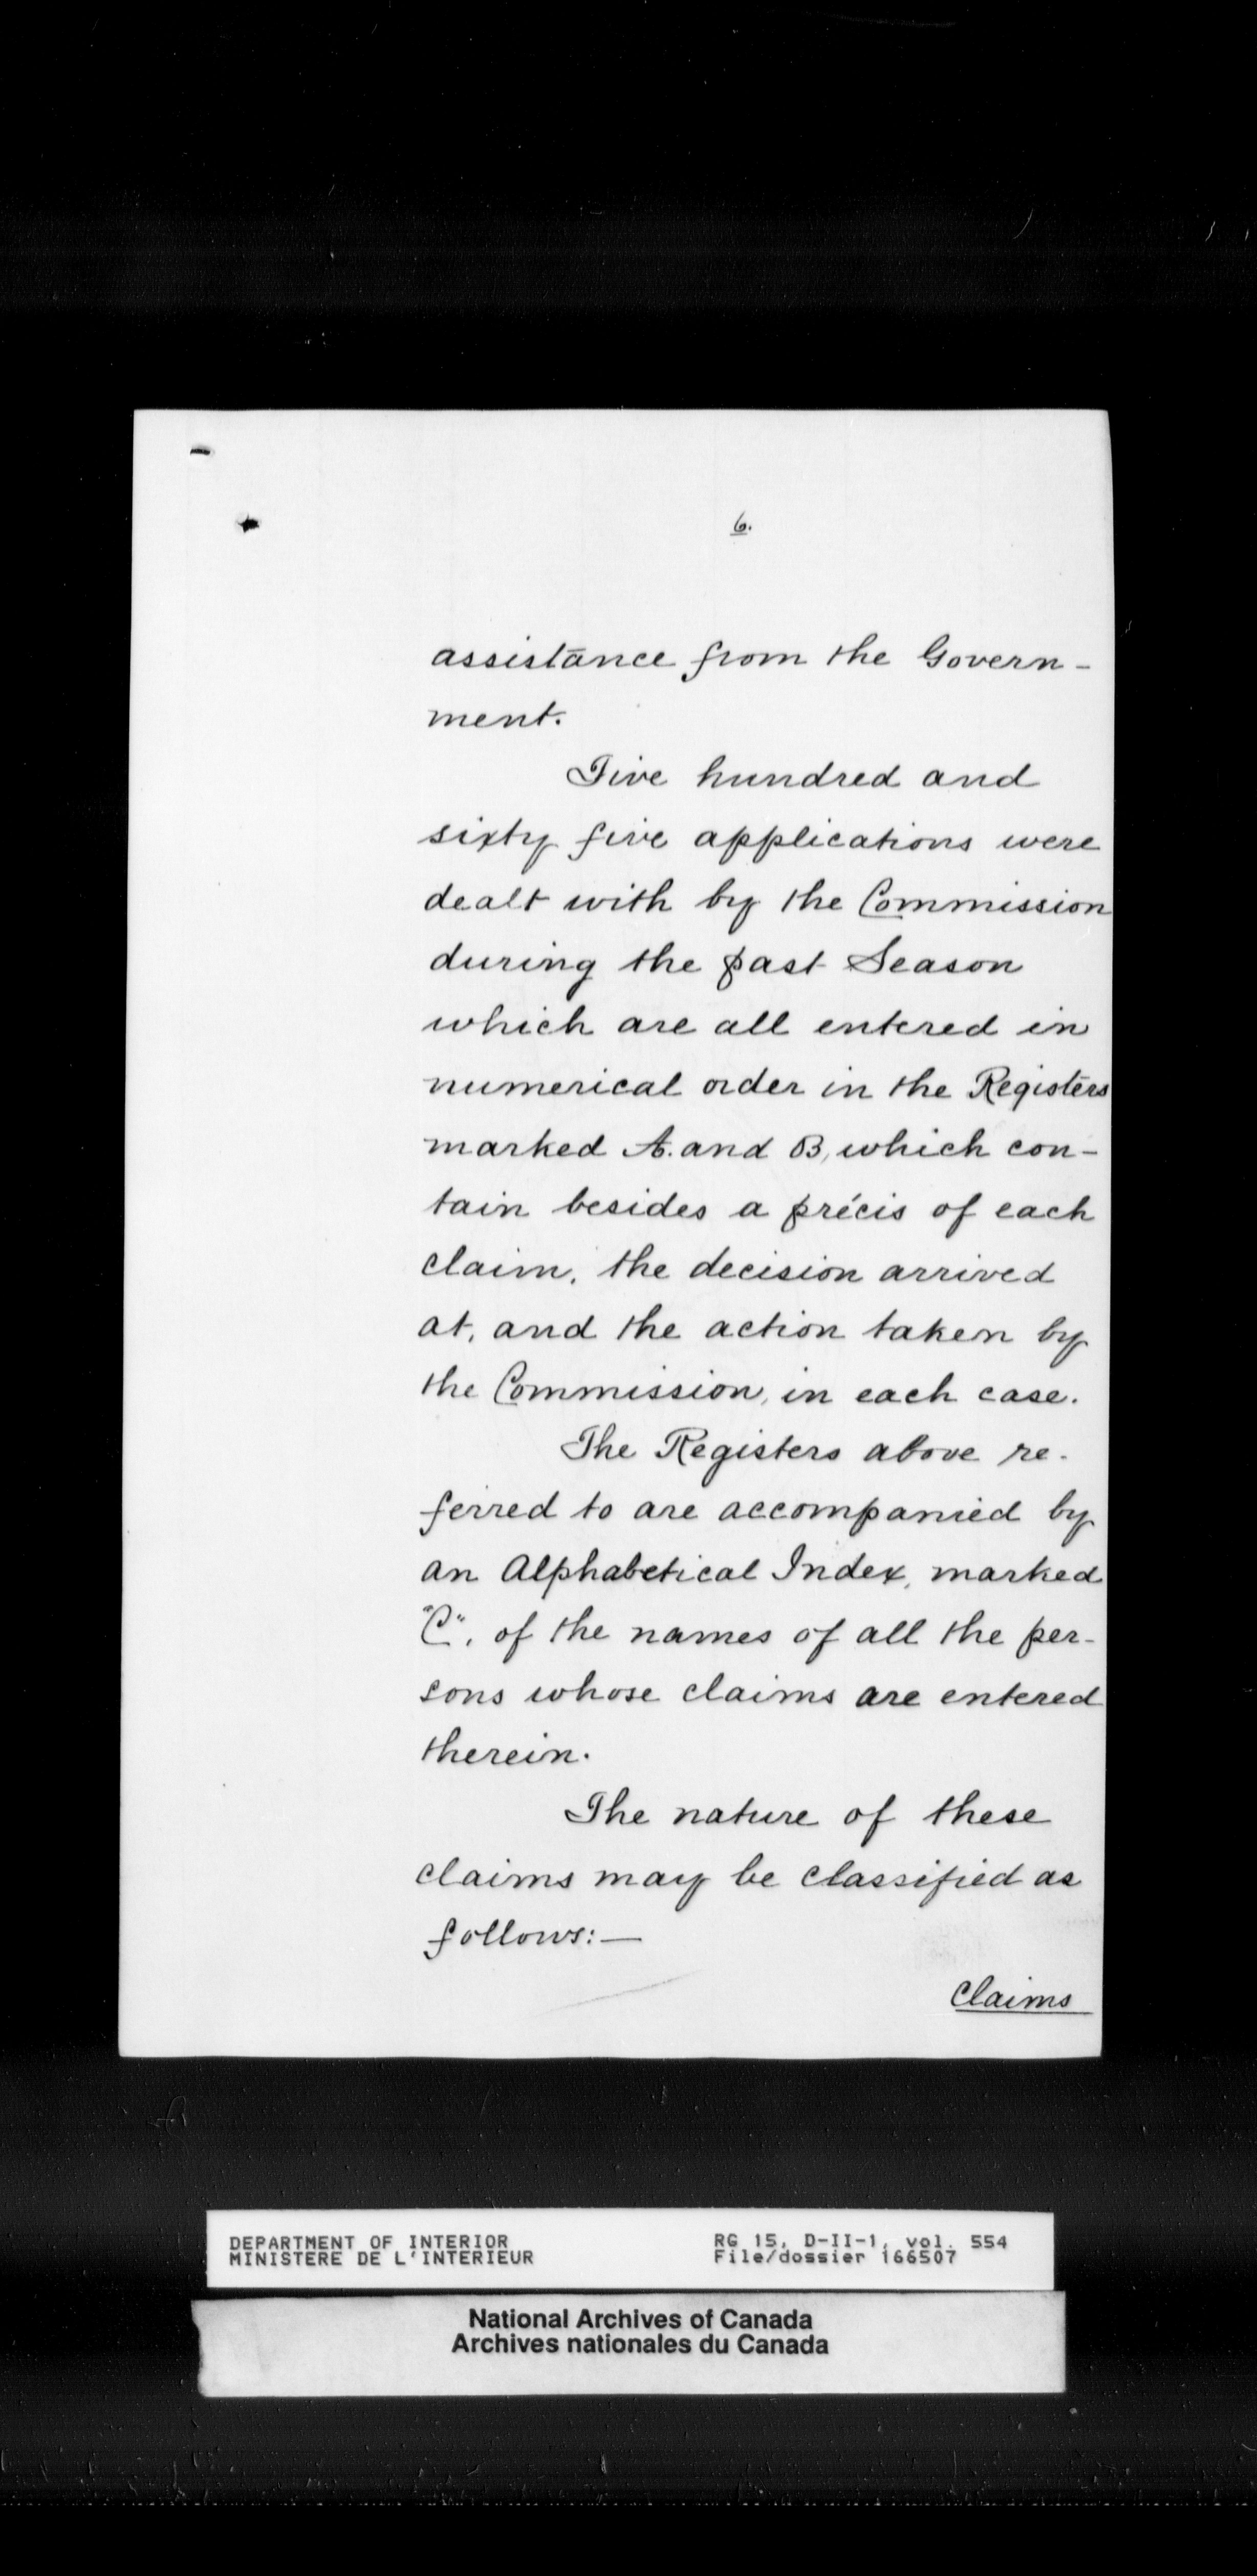 6.
assistance from the Govern-
ment.
Five hundred and
sixty five applications were
dealt with by the Commission
during the past Season
which are all entered in
numerical order in the Registers
marked A. and B, which con-
tain besides a précis of each
claim, the decision arrived
at, and the action taken by
the Commission, in each case.
The Registers above re-
ferred to are accompanied by
an Alphabetical Index, marked
"C", of the names of all the per-
sons whose claims are entered
therein.
The nature of these
claims may be classified as
follows:—
Claims
DEPARTMENT OF INTERIOR RG 15, D-II-1, vol. 554
MINISTERE DE L'INTERIEUR File/dossier 166507
National Archives of Canada
Archives nationales du Canada